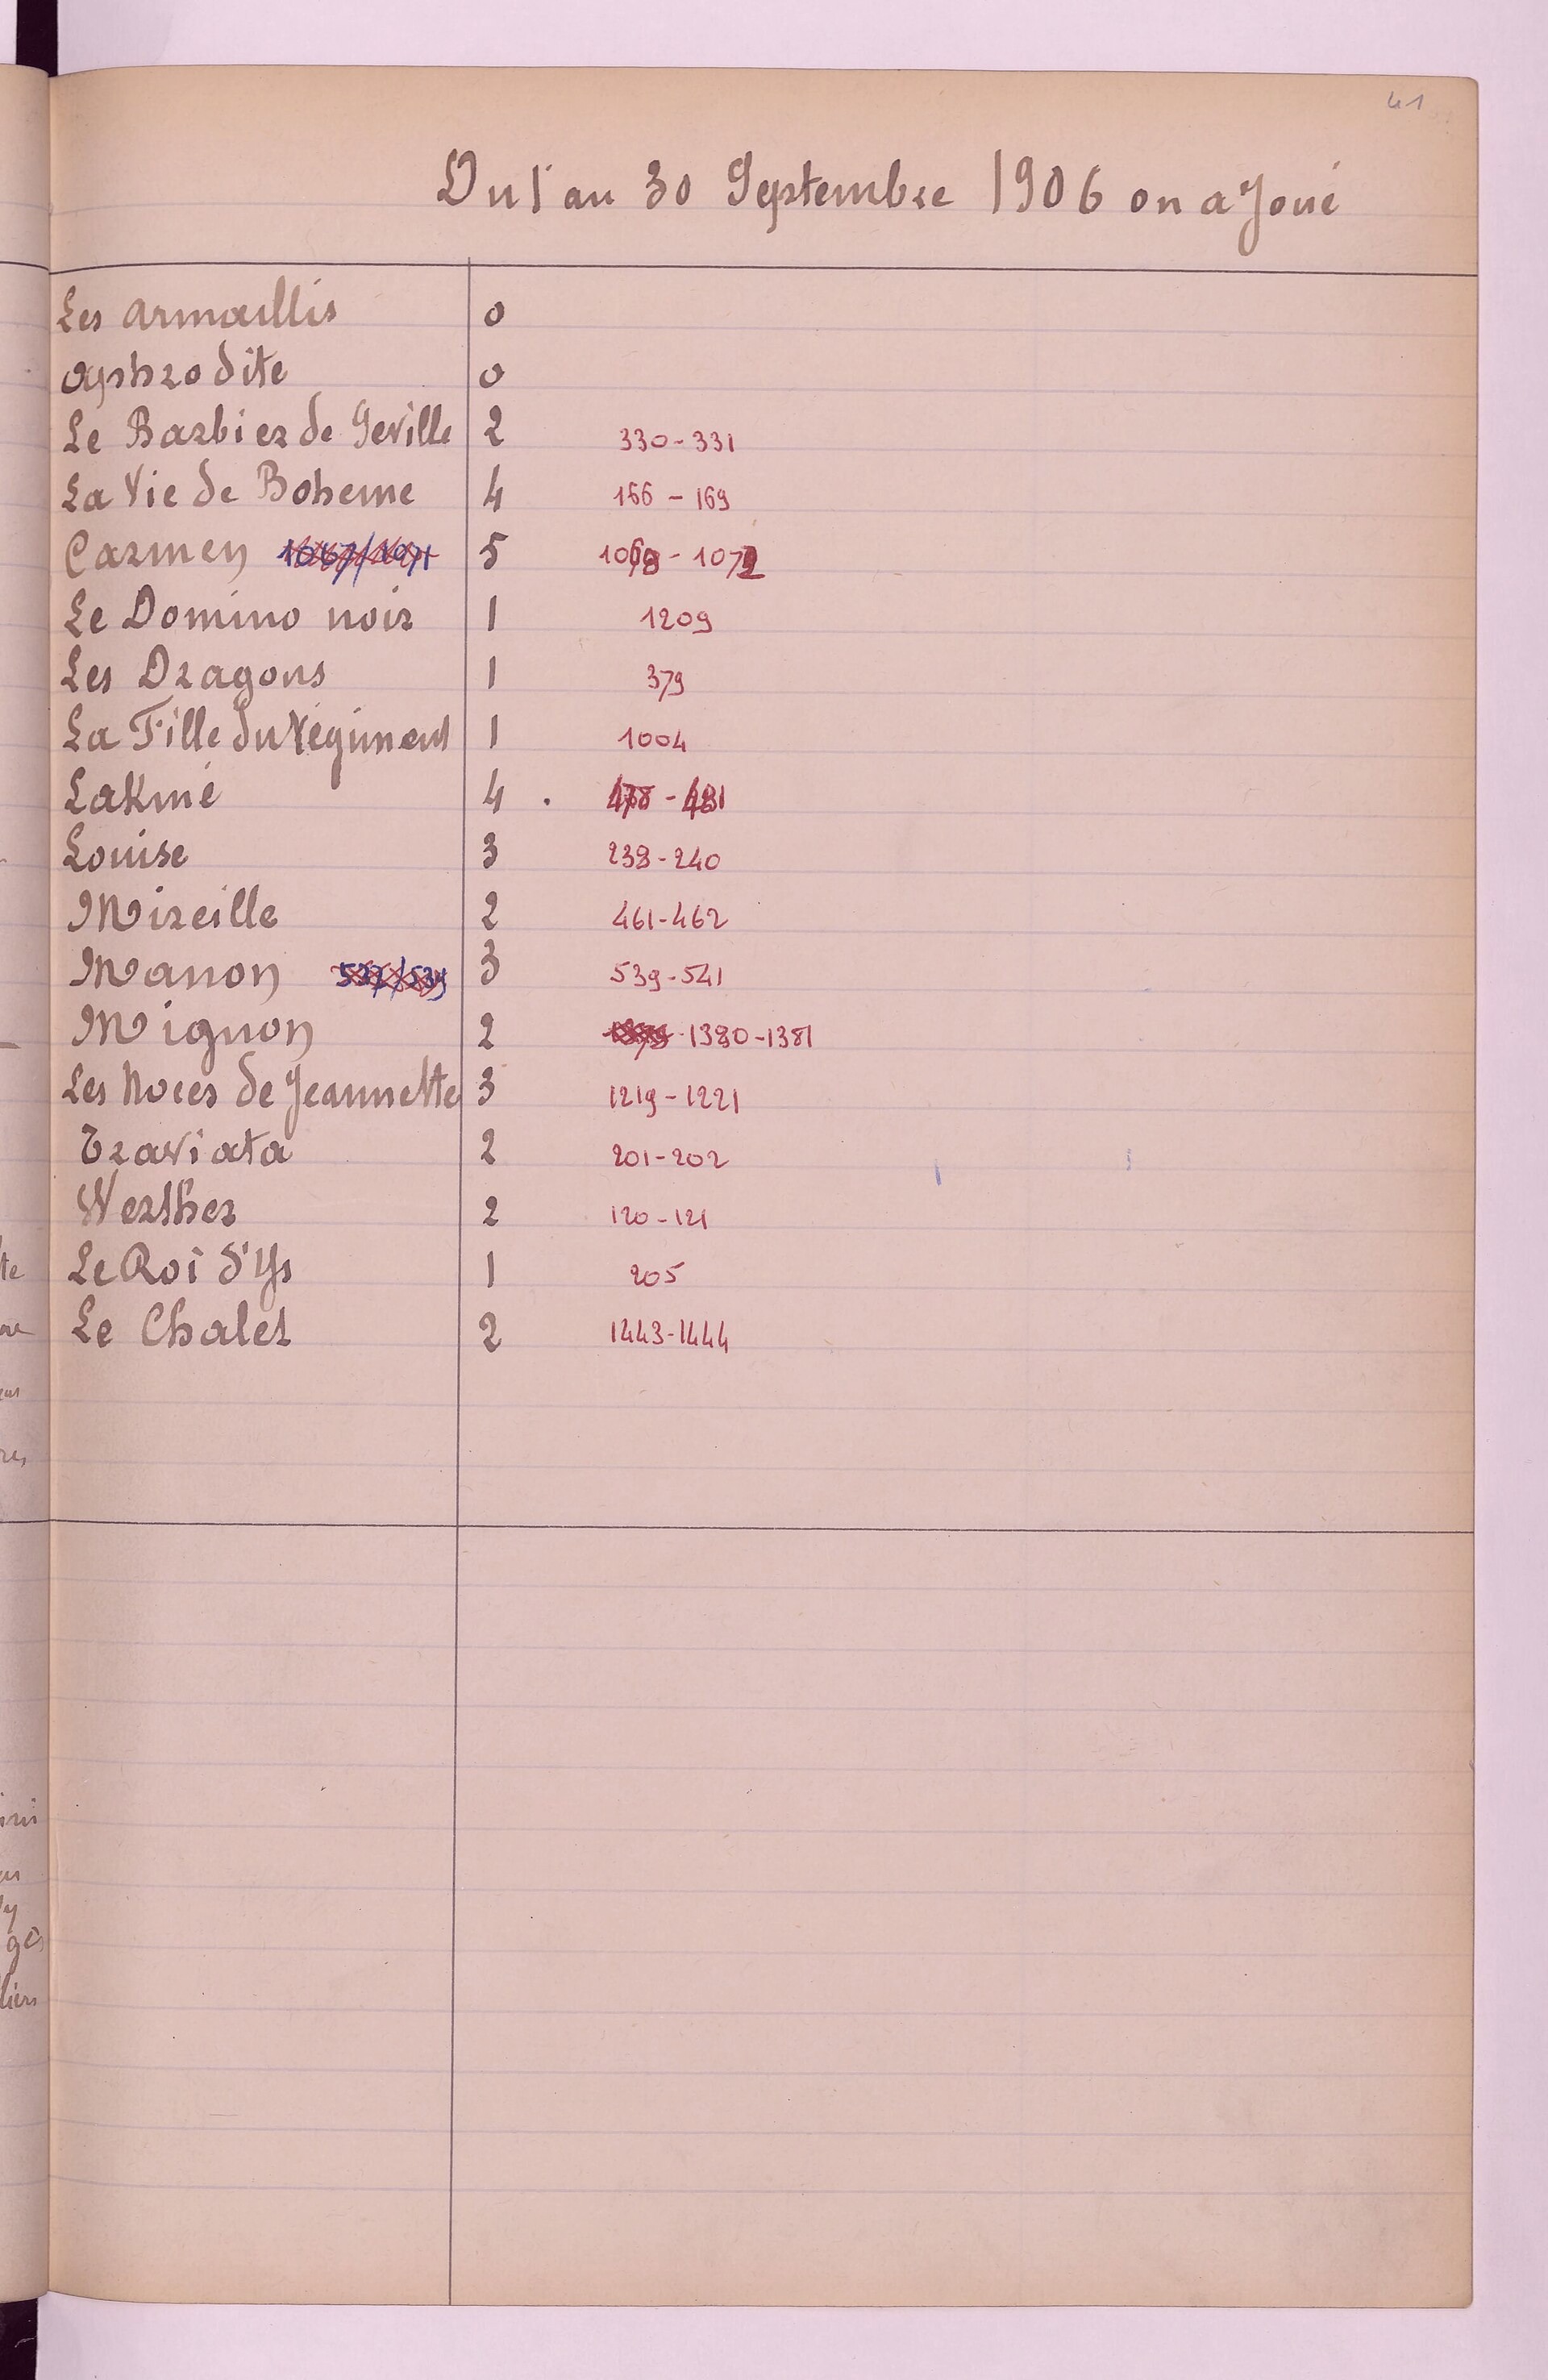 41
Du 1er au 30 Septembre 1906 on a Joué
Les Armaillis 0
Aphrodite 0
Le Barbier de Séville 2 330-331
La Vie de Boheme 4 166-169
Carmen 1067/1071 5 1068-1072
Le Domino noir 1 1209
Les Dragons 1 379
La Fille du régiment 1 1004
Lakmé 4 478-481
Louise 3 238-240
Mireille 2 461-462
Manon 537/539 3 539-541
Mignon 2 1379 1380-1381
Les Noces de Jeannette 3 1219-1221
Traviata 2 201-202
Werther 2 120-121
Le Roi d'Ys 1 205
Le Chalet 2 1443-1444